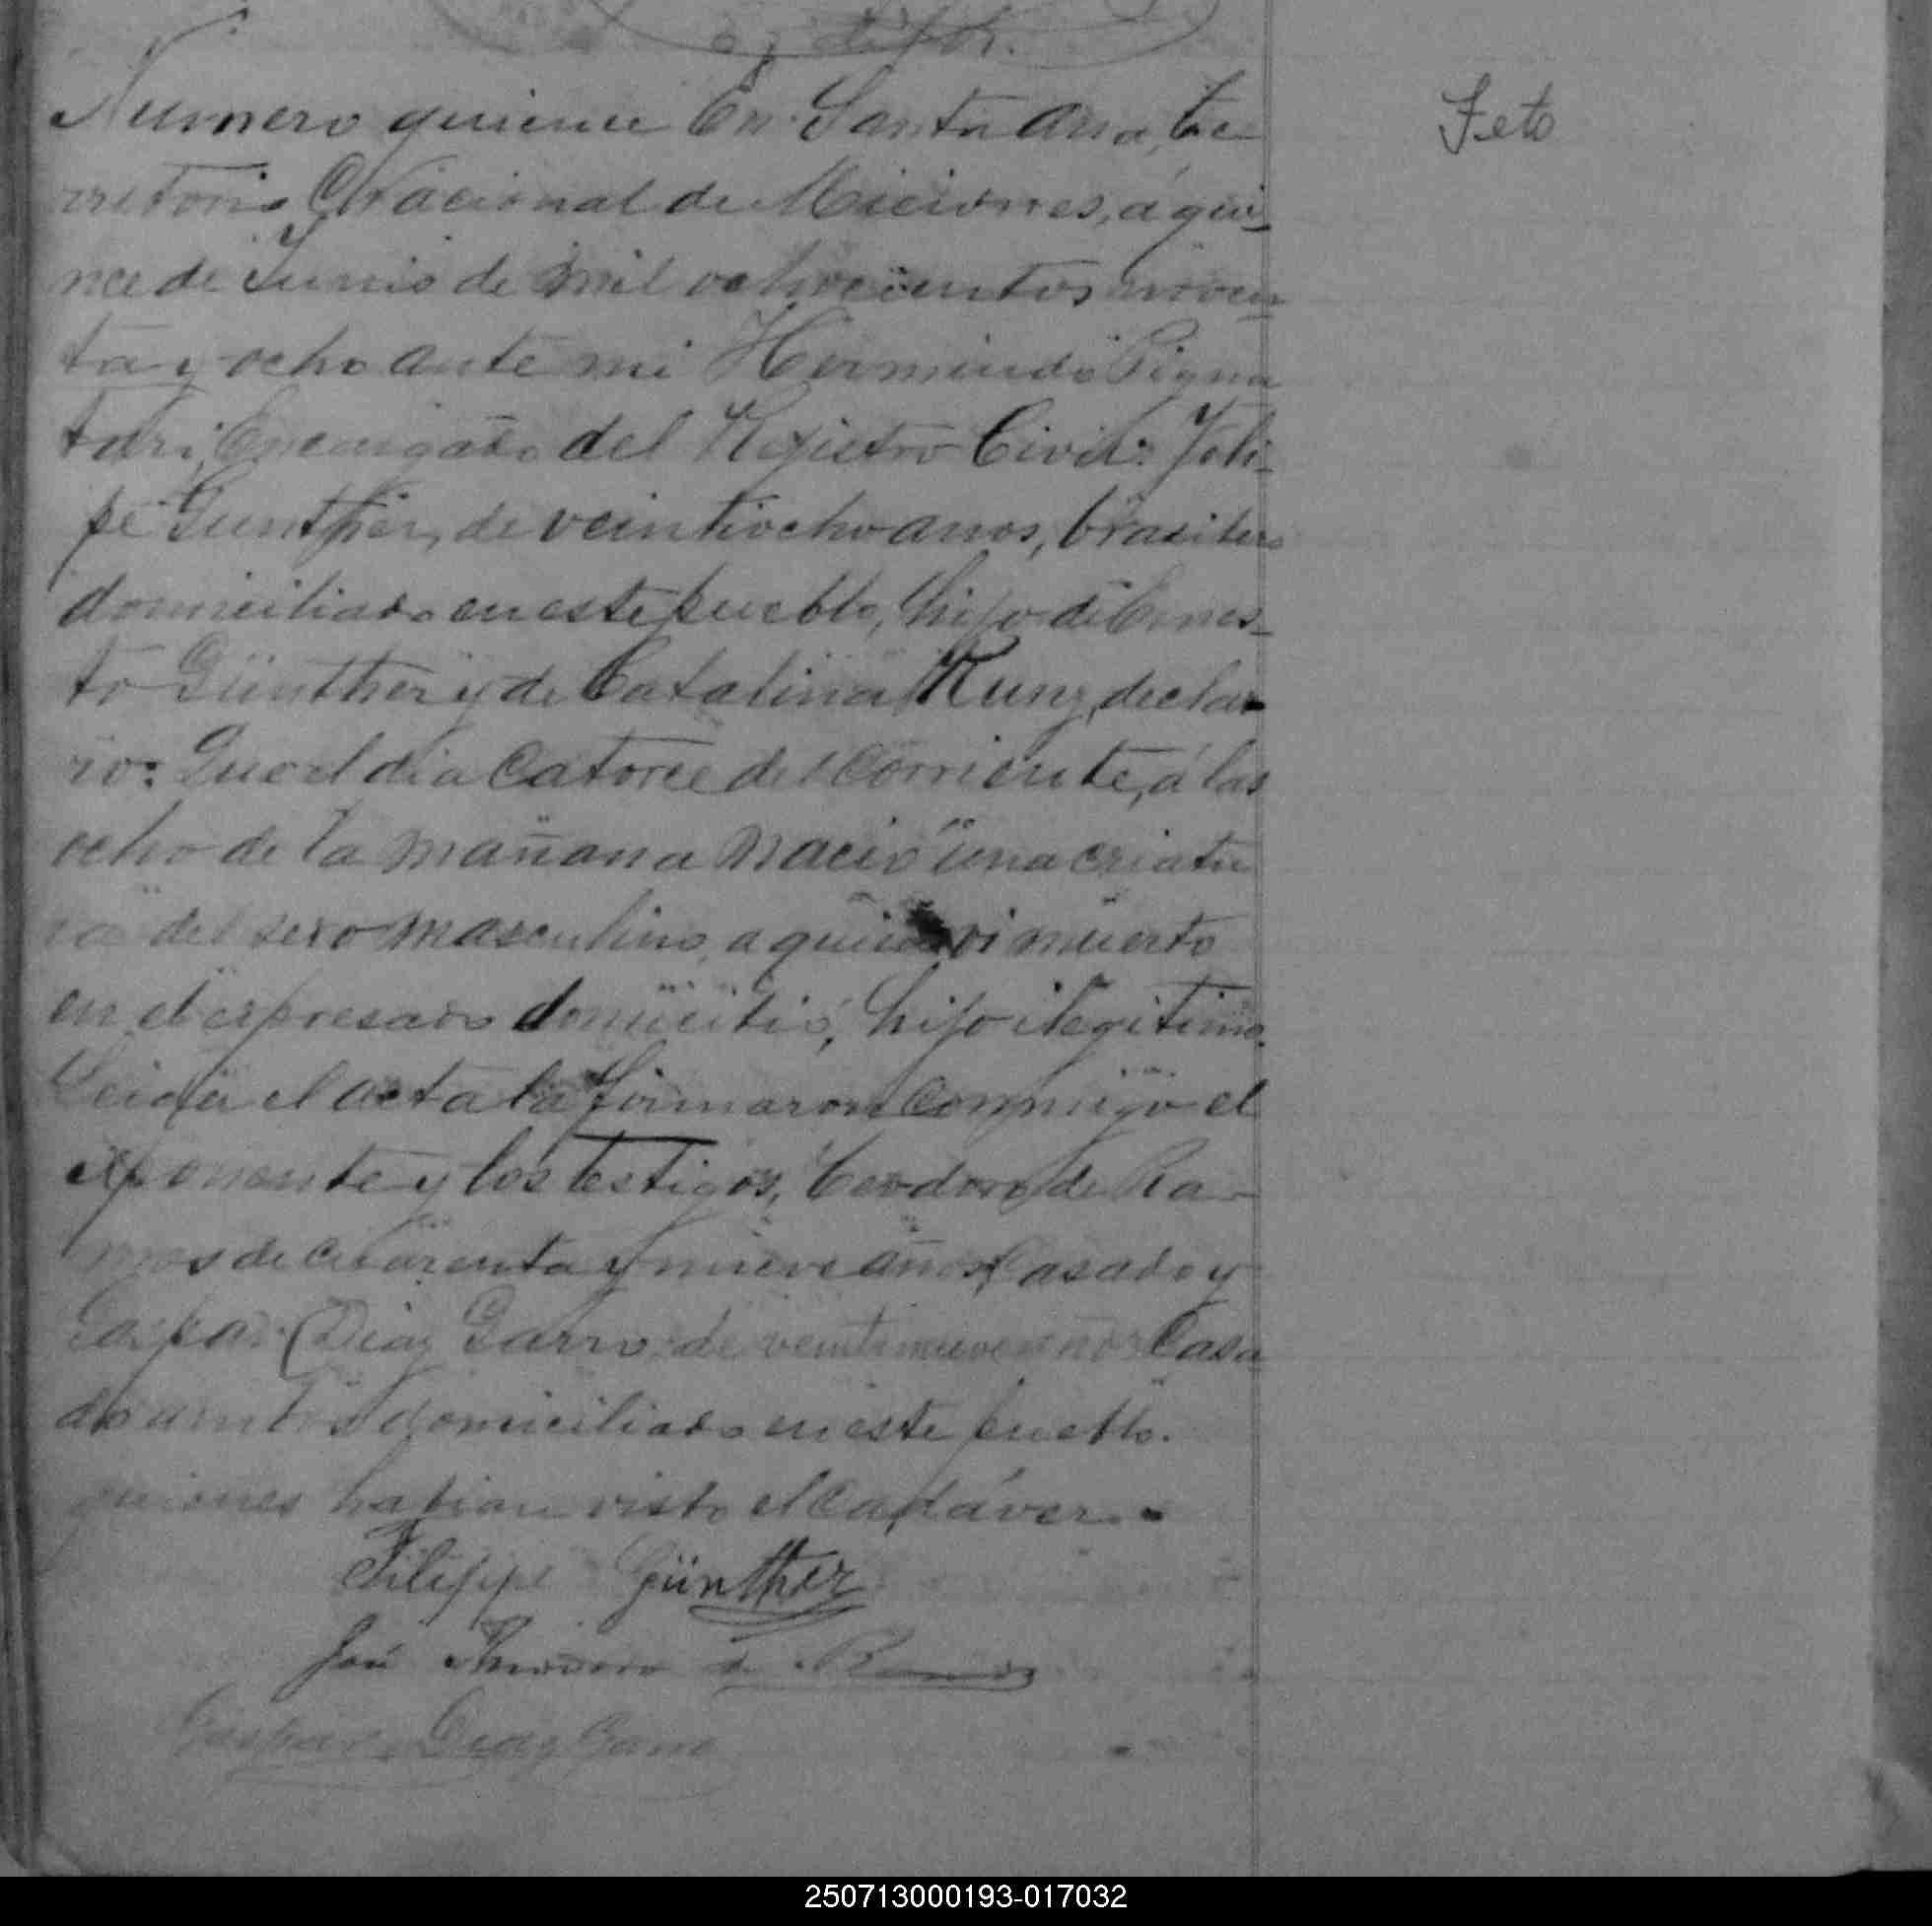 Feto
Numero quience En Santa Ana, te
rritorio Nacional de Miciones, á qui-
nce de Junio de mil ochocientos noven
ta y ocho ante mi Hermindo Pigna
tari, Encargado del Rejistro Civil: Feli-
pe Gunther, de veintiocho anos, brasilero
domiciliado en este pueblo, hijo de Ernes-
to Günther y de Catalina Kunz, decla
ró: Que el dia Catorce del Corriente, á las
ocho de la mañana nació una criatu
ra del sexo masculino, a quien vi muerto
en el expresado domicilio, hijo ilegitimo.
Leida el acta la firmaron Conmigo el
exponente y los testigos, Teodoro de Ra-
mos de cuarenta y nueve años, Casado y
Gaspar Diaz Garro de veintinueve años Casa
do ambos domiciliado en este pueblo.
quienes habian visto el Cadáver.=
Filippe Günther
José Theodoro de Ramos
Gaspar Diaz Garro
250713000193-017032